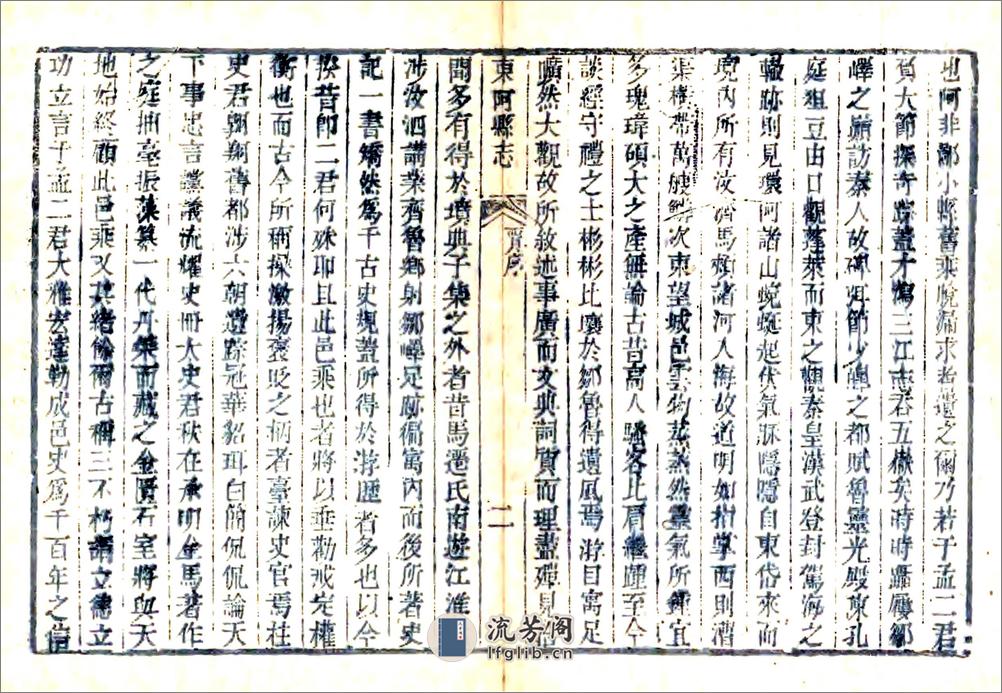 地阿非鄙小緣舊乘脫漏求者遺之爾乃若于孟二君
質大節探奇踪蓋才獨三江志吞五嶽矣時時躡屩鄒
嶧之巔訪秦人故碑弭節少皞之都賦魯靈光毀東孔
庭俎豆由日觀蓬萊而東之觀秦皇漢武登封駕海之
轍跡則見環阿諸山蜿蜒起伏氣脉隱隱自東岱來而
境內所有汶濟馬頰諸河入海故道明如指掌西則漕
渠橫帶萬艘鱗次東望城邑雲物蒸蒸然靈氣所鍾宜
多瑰瑋碩大之產無論古昔高人騷客比肩繼踵至今
談經守禮之士彬彬比壤於鄒魯得遺風焉游目寓足
曠然大觀故所敘述事廣而文典詞質而理盡殫見
東阿縣志
序
二
聞多有得於墳典子集之外者昔馬遷氏南遊江淮
涉汶泗講業齊魯鄉射鄒嶧足跡徧寓內而後所著史
記一書矯然爲千古史規蓋所得於游歷者多也以今
揆昔卽二君何殊耶且此邑乘也者將以垂勸戒定權
衡也而古今所稱操激揚褒貶之柄者臺諫史官焉柱
史君翱翔舊都涉六朝遺踪冠華貂珥白簡侃侃論天
下事忠言讜議流耀史冊大史君秋在承明金馬著作
之庭抽毫振藻纂一代丹榮而藏之金匱石室將與天
地始終顧此邑乘乂其緒餘爾古稱三不朽謂立德立
功立言于孟二君大雅宏達勒成邑史爲千百年之信
流芳閣
lfglib.cn